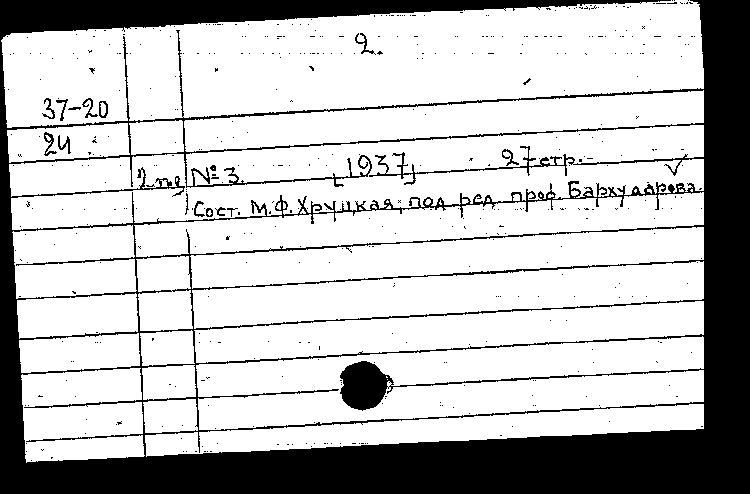 2.
37-20
24
2 пе № 3. [1937] 27 стр. ✓
Сост. М.Ф. Хруцкая, под ред. проф. Бархударова.